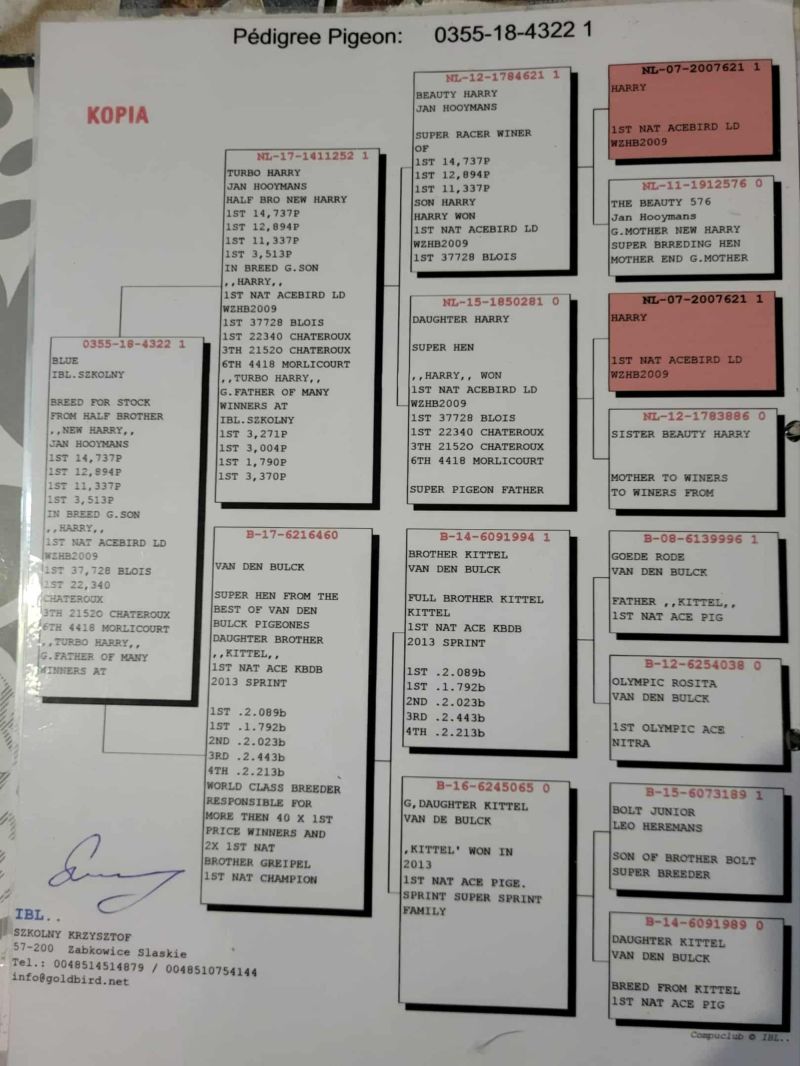 Pédigree Pigeon: 0355-18-4322 1
KOPIA
0355-18-4322 1
BLUE
IBL.SZKOLNY
BREED FOR STOCK
FROM HALF BROTHER
,,NEW HARRY,,
JAN HOOYMANS
1ST 14,737P
1ST 12,894P
1ST 11,337P
1ST 3,513P
IN BREED G.SON
,,HARRY,,
1ST NAT ACEBIRD LD
WZHB2009
1ST 37,728 BLOIS
1ST 22,340
CHATEROUX
3TH 21520 CHATEROUX
6TH 4418 MORLICOURT
,,TURBO HARRY,,
G.FATHER OF MANY
WINNERS AT
NL-17-1411252 1
TURBO HARRY
JAN HOOYMANS
HALF BRO NEW HARRY
1ST 14,737P
1ST 12,894P
1ST 11,337P
1ST 3,513P
IN BREED G.SON
,,HARRY,,
1ST NAT ACEBIRD LD
WZHB2009
1ST 37728 BLOIS
1ST 22340 CHATEROUX
3TH 21520 CHATEROUX
6TH 4418 MORLICOURT
,,TURBO HARRY,,
G.FATHER OF MANY
WINNERS AT
IBL.SZKOLNY
1ST 3,271P
1ST 3,004P
1ST 1,790P
1ST 3,370P
B-17-6216460
VAN DEN BULCK
SUPER HEN FROM THE
BEST OF VAN DEN
BULCK PIGEONES
DAUGHTER BROTHER
,,KITTEL,,
1ST NAT ACE KBDB
2013 SPRINT
1ST .2.089b
1ST .1.792b
2ND .2.023b
3RD .2.443b
4TH .2.213b
WORLD CLASS BREEDER
RESPONSIBLE FOR
MORE THEN 40 X 1ST
PRICE WINNERS AND
2X 1ST NAT
BROTHER GREIPEL
1ST NAT CHAMPION
NL-12-1784621 1
BEAUTY HARRY
JAN HOOYMANS
SUPER RACER WINER
OF
1ST 14,737P
1ST 12,894P
1ST 11,337P
SON HARRY
HARRY WON
1ST NAT ACEBIRD LD
WZHB2009
1ST 37728 BLOIS
NL-15-1850281 0
DAUGHTER HARRY
SUPER HEN
,,HARRY,, WON
1ST NAT ACEBIRD LD
WZHB2009
1ST 37728 BLOIS
1ST 22340 CHATEROUX
3TH 21520 CHATEROUX
6TH 4418 MORLICOURT
SUPER PIGEON FATHER
B-14-6091994 1
BROTHER KITTEL
VAN DEN BULCK
FULL BROTHER KITTEL
KITTEL
1ST NAT ACE KBDB
2013 SPRINT
1ST .2.089b
1ST .1.792b
2ND .2.023b
3RD .2.443b
4TH .2.213b
B-16-6245065 0
G,DAUGHTER KITTEL
VAN DE BULCK
,KITTEL' WON IN
2013
1ST NAT ACE PIGE.
SPRINT SUPER SPRINT
FAMILY
NL-07-2007621 1
HARRY
1ST NAT ACEBIRD LD
WZHB2009
NL-11-1912576 0
THE BEAUTY 576
Jan Hooymans
G.MOTHER NEW HARRY
SUPER BRREDING HEN
MOTHER END G.MOTHER
NL-07-2007621 1
HARRY
1ST NAT ACEBIRD LD
WZHB2009
NL-12-1783886 0
SISTER BEAUTY HARRY
MOTHER TO WINERS
TO WINERS FROM
B-08-6139996 1
GOEDE RODE
VAN DEN BULCK
FATHER ,,KITTEL,,
1ST NAT ACE PIG
B-12-6254038 0
OLYMPIC ROSITA
VAN DEN BULCK
1ST OLYMPIC ACE
NITRA
B-15-6073189 1
BOLT JUNIOR
LEO HEREMANS
SON OF BROTHER BOLT
SUPER BREEDER
B-14-6091989 0
DAUGHTER KITTEL
VAN DEN BULCK
BREED FROM KITTEL
1ST NAT ACE PIG
IBL..
SZKOLNY KRZYSZTOF
57-200 Zabkowice Slaskie
Tel.: 0048514514879 / 0048510754144
info@goldbird.net
Compuclub © IBL..